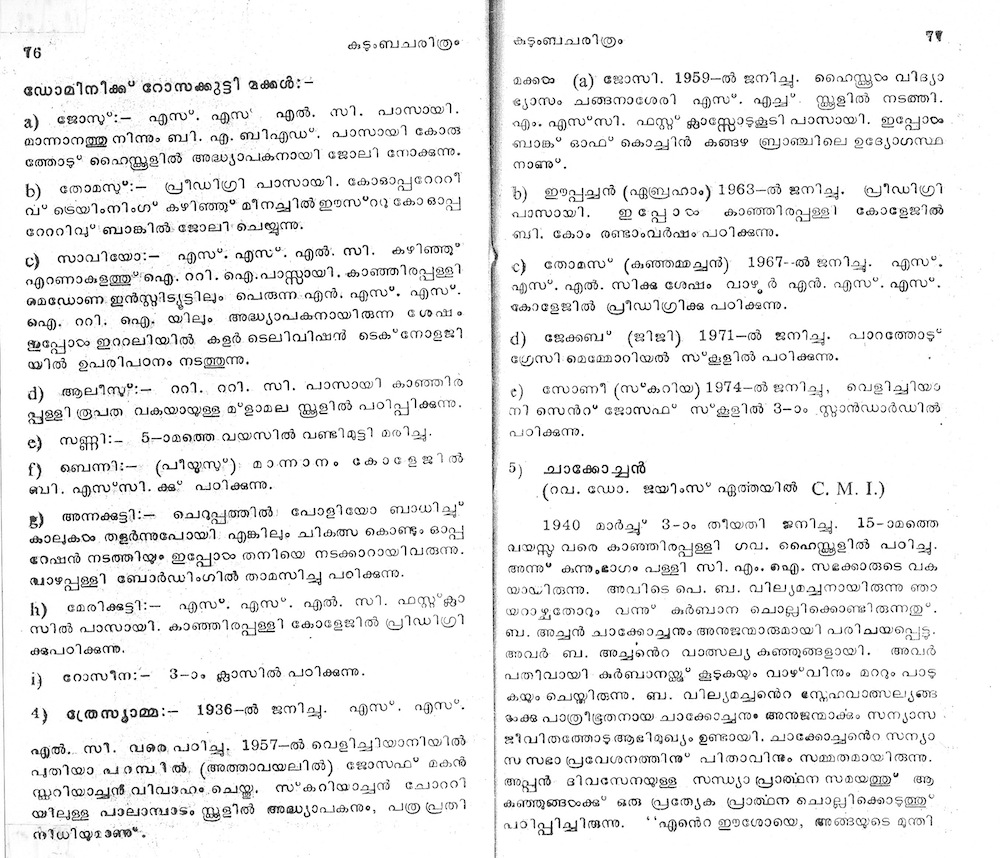 76
കുടുംബചരിത്രം
ഡോമിനീക്ക് റോസക്കുട്ടി മക്കൾ:-
a) ജോസ്:- എസ്. എസ് എൽ. സി. പാസായി.
മാന്നാനത്തു നിന്നും ബി. എ. ബിഎഡ്. പാസായി കോരു
ത്തോട് ഹൈസ്കൂളിൽ അദ്ധ്യാപകനായി ജോലി നോക്കുന്നു.
b) തോമസ്:- പ്രീഡിഗ്രി പാസായി. കോഓപ്പറേററീ
വ് ട്രെയിംനിംഗ് കഴിഞ്ഞ് മീനച്ചിൽ ഈസ്ററു കോ ഓപ്പ
റേററിവ് ബാങ്കിൽ ജോലി ചെയ്യുന്നു.
c) സാവിയോ:- എസ്. എസ്. എൽ. സി. കഴിഞ്ഞ്
എറണാകുളത്ത് ഐ. ററി. ഐ.പാസ്സായി. കാഞ്ഞിരപ്പള്ളി
മെഡോണ ഇൻസ്റ്റിട്യൂട്ടിലും പെരുന്ന എൻ. എസ്. എസ്.
ഐ. ററി. ഐ. യിലും അദ്ധ്യാപകനായിരുന്ന ശേഷം
ഇപ്പോൾ ഇററലിയിൽ കളർ ടെലിവിഷൻ ടെക്നോളജി
യിൽ ഉപരിപഠനം നടത്തുന്നു.
d) ആലീസ്:- ററി. ററി. സി. പാസായി കാഞ്ഞിര
പ്പള്ളി രൂപത വകയായുള്ള മ്ളാമല സ്കൂളിൽ പഠിപ്പിക്കുന്നു.
e) സണ്ണി:- 5-ാമത്തെ വയസിൽ വണ്ടിമുട്ടി മരിച്ചു.
f) ബെന്നി:- (പീയൂസ്) മാന്നാനം കോളെജിൽ
ബി. എസ്സി. ക്ക് പഠിക്കുന്നു.
g) അന്നക്കുട്ടി:- ചെറുപ്പത്തിൽ പോളിയോ ബാധിച്ച്
കാലുകൾ തളർന്നുപോയി എങ്കിലും ചികത്സ കൊണ്ടും ഓപ്പ
റേഷൻ നടത്തിയും ഇപ്പോൾ തനിയെ നടക്കാറായിവരുന്നു.
വാഴപ്പള്ളി ബോർഡിംഗിൽ താമസിച്ചു പഠിക്കുന്നു.
h) മേരിക്കുട്ടി:- എസ്. എസ്. എൽ. സി. ഫസ്റ്റ്ക്ലാ
സിൽ പാസായി. കാഞ്ഞിരപ്പള്ളി കോളേജിൽ പ്രിഡിഗ്രി
ക്കുപഠിക്കുന്നു.
i) റോസീന:- 3-ാം ക്ലാസിൽ പഠിക്കുന്നു.
4) ത്രേസ്യാമ്മ:- 1936-ൽ ജനിച്ചു. എസ്. എസ്.
എൽ. സീ. വരെ പഠിച്ചു. 1957-ൽ വെളിച്ചിയാനിയിൽ
പുതിയാ പറമ്പിൽ (അത്താവയലിൽ) ജോസഫ് മകൻ
സ്കറിയാച്ചൻ വിവാഹം ചെയ്തു. സ്കറിയാച്ചൻ ചോററി
യിലുള്ള പാലാമ്പാടം സ്കൂളിൽ അദ്ധ്യാപകനും, പത്ര പ്രതി
നിധിയുമാണ്.
കുടുംബചരിത്രം
77
മക്കൾ (a) ജോസി. 1959-ൽ ജനിച്ചു. ഹൈസ്കൂൾ വിദ്യാ
ഭ്യാസം ചങ്ങനാശേരി എസ്. എച്ച് സ്കൂളിൽ നടത്തി.
എം. എസ്സി. ഫസ്റ്റ് ക്ലാസ്സോടുകൂടി പാസായി. ഇപ്പോൾ
ബാങ്ക് ഓഫ് കൊച്ചിൻ കങ്ങഴ ബ്രാഞ്ചിലെ ഉദ്യോഗസ്ഥ
നാണ്.
b) ഈപ്പച്ചൻ (ഏബ്രഹാം) 1963-ൽ ജനിച്ചു. പ്രീഡിഗ്രി
പാസായി. ഇപ്പോൾ കാഞ്ഞിരപ്പള്ളി കോളേജിൽ
ബി. കോം രണ്ടാംവർഷം പഠിക്കുന്നു.
c) തോമസ് (കുഞ്ഞമ്മച്ചൻ) 1967-ൽ ജനിച്ചു. എസ്.
എസ്. എൽ. സിക്കു ശേഷം വാഴൂർ എൻ. എസ്. എസ്.
കോളേജിൽ പ്രീഡിഗ്രിക്കു പഠിക്കുന്നു.
d) ജേക്കബ് (ജിജി) 1971-ൽ ജനിച്ചു. പാറത്തോട്
ഗ്രേസി മെമ്മോറിയൽ സ്കൂളിൽ പഠിക്കുന്നു.
e) സോണീ (സ്കറിയ) 1974-ൽ ജനിച്ചു, വെളിച്ചിയാ
നി സെൻറ് ജോസഫ് സ്കൂളിൽ 3-ാം സ്റ്റാൻഡാർഡിൽ
പഠിക്കുന്നു.
5) ചാക്കോച്ചൻ
(റവ. ഡോ. ജയിംസ് ഏർത്തയിൽ C. M. I.)
1940 മാർച്ച് 3-ാം തീയതി ജനിച്ചു. 15-ാമത്തെ
വയസ്സു വരെ കാഞ്ഞിരപ്പള്ളി ഗവ. ഹൈസ്കൂളിൽ പഠിച്ചു.
അന്ന് കുന്നുംഭാഗം പള്ളി സി. എം. ഐ. സഭക്കാരുടെ വക
യായിരുന്നു. അവിടെ പെ. ബ. വില്യമച്ചനായിരുന്നു ഞാ
യറാഴ്ചതോറും വന്ന് കുർബാന ചൊല്ലിക്കൊണ്ടിരുന്നത്.
ബ. അച്ചൻ ചാക്കോച്ചനും അനുജന്മാരുമായി പരിചയപ്പെട്ടു.
അവർ ബ. അച്ചൻെറ വാത്സല്യ കുഞ്ഞുങ്ങളായി. അവർ
പതിവായി കുർബാനയ്ക്ക് കൂടുകയും വാഴ്വിനും മററും പാടു
കയും ചെയ്തിരുന്നു. ബ. വില്യമച്ചൻെറ സ്നേഹവാത്സല്യങ്ങ
ൾക്കു പാത്രീഭൂതനായ ചാക്കോച്ചനും അനുജന്മാർക്കും സന്യാസ
ജീവിതത്തോടു ആഭിമുഖ്യം ഉണ്ടായി. ചാക്കോച്ചൻെറ സന്യാ
സ സഭാ പ്രവേശനത്തിന് പിതാവിനും സമ്മതമായിരുന്നു.
അപ്പൻ ദിവസേനയുള്ള സന്ധ്യാ പ്രാർത്ഥന സമയത്ത് ആ
കുഞ്ഞുങ്ങൾക്ക് ഒരു പ്രത്യേക പ്രാർത്ഥന ചൊല്ലിക്കൊടുത്ത്
പഠിപ്പിച്ചിരുന്നു. "എൻെറ ഈശോയെ, അങ്ങയുടെ മുന്തി